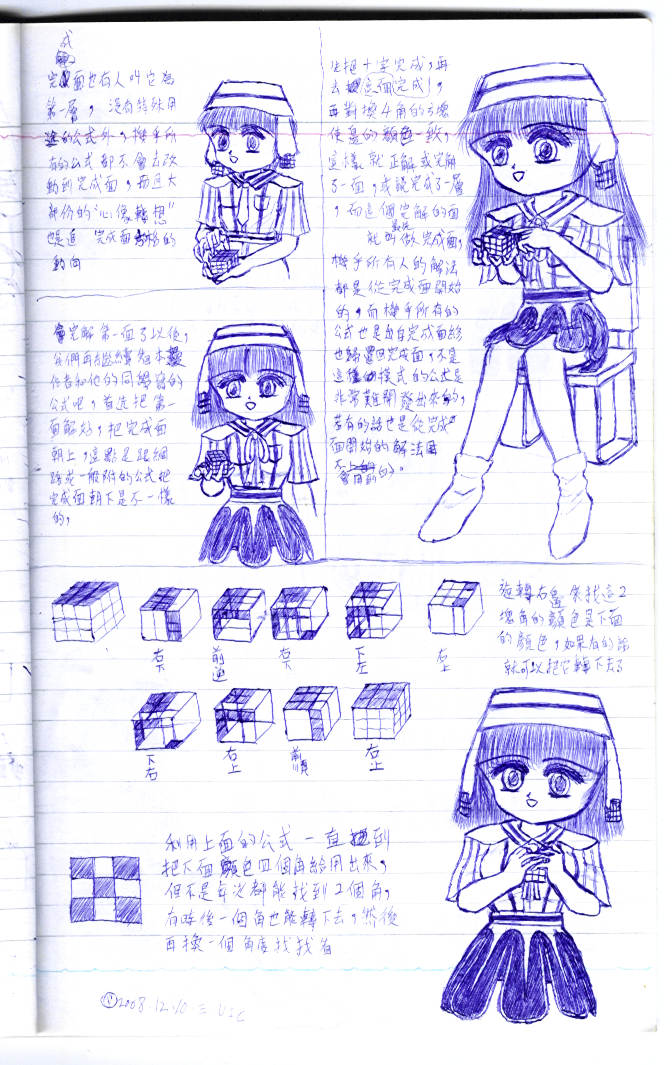 成
完面也有人叫它為
第一層，沒有特殊用
途的公式外，機乎所
有的公式都不會去改
動到完成面，而且大
部份的"心像轉想"
也是追 完成面的
動向
先把十字完成，再
去這面完成，
再對換4角的3塊
使邊的顏色一致，
這樣就正解或完解
了一面，或說完成了一層
，而這個完解的面
就叫做完成面，
機乎所有人的解法
都是從完成面開始
的，而機乎所有的
公式也是由自完成面
也歸還回完成面，不是
這樣的模式的公式是
非常難開發出來的，
若有的話也是從完成
面開始的解法
會用到的。
當完解第一面了以後，
我們再繼續
作者和他的同學寫的
公式吧，首先把第一
面解好，把完成面
朝上，這點是跟網
路或一般附的公式把
完成面朝下是不一樣
的，
旋轉右邊 來找這2
塊角的顏色是下面
的顏色，如果有的話
就可以把它轉下去了
右下
前逆
右下
下左
右上
下右
右上
前順
右上
利用上面的公式一直到
把下面顏色四個角給用出來，
但不是每次都能找到2個角，
有時後一個角也能轉下去，然後
再換一個角度找找看
2008.12.10 三 VIC